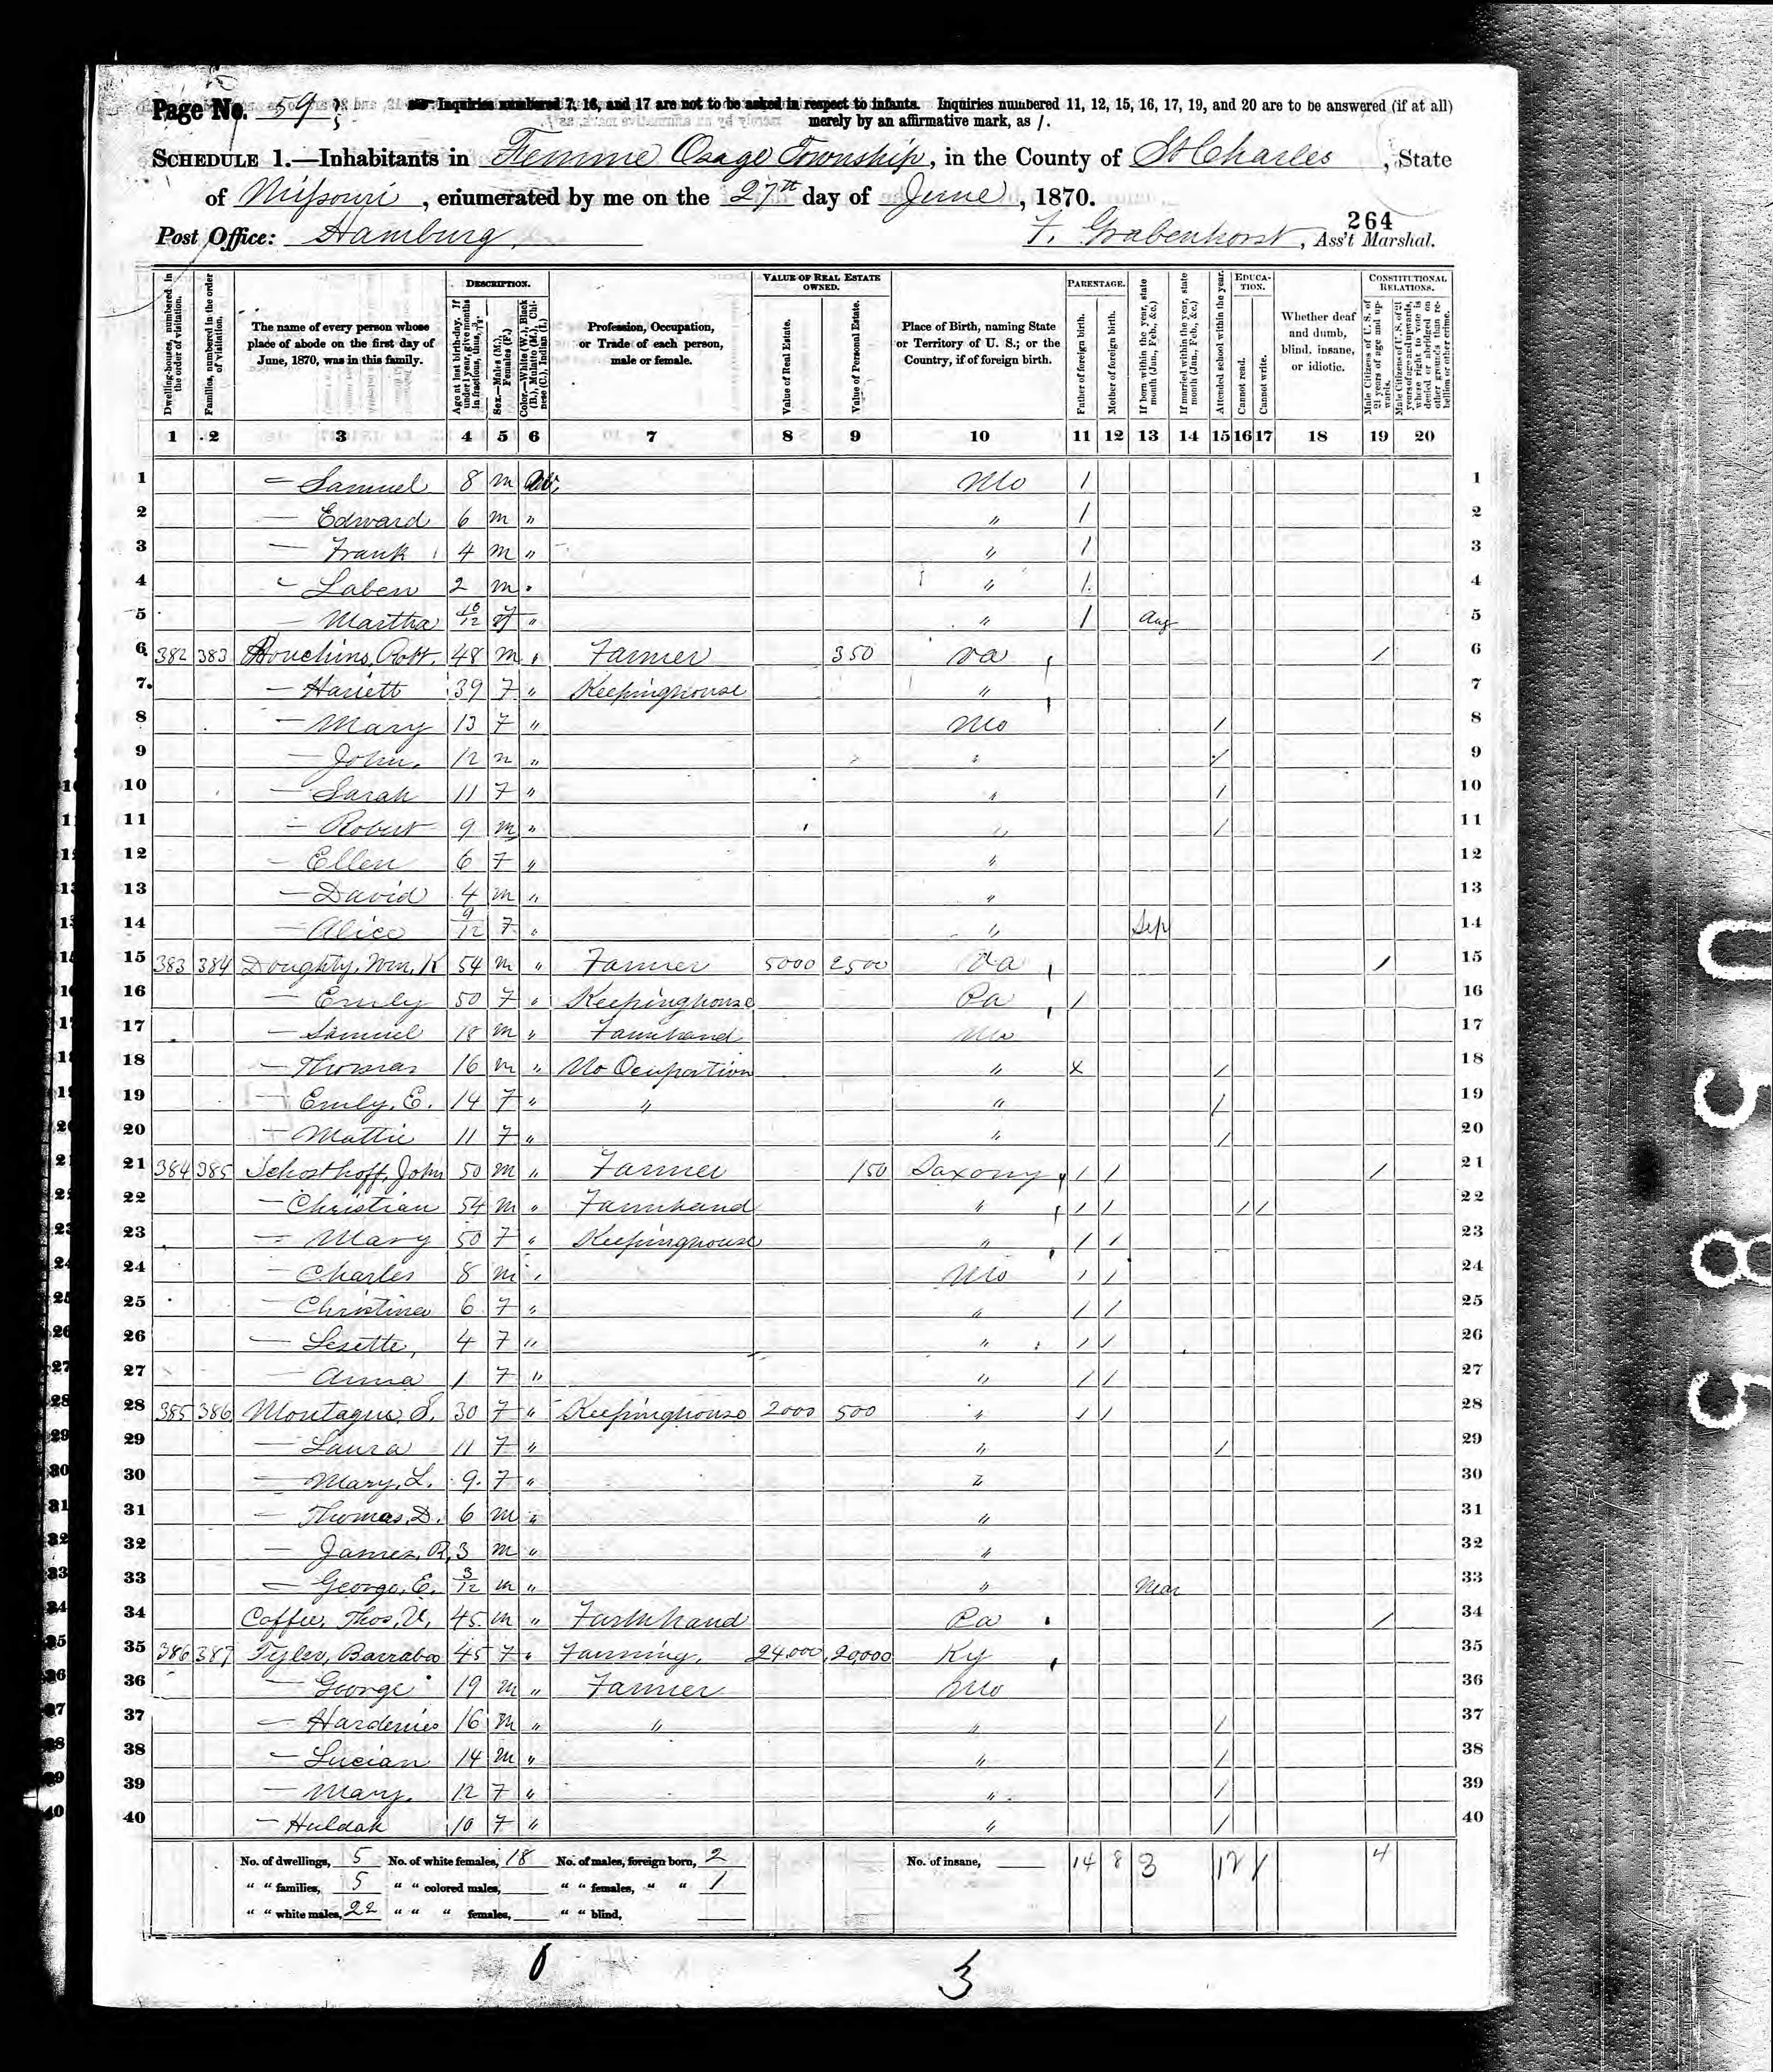 Page No. 59
Inquiries numbered 7, 16, and 17 are not to be asked in respect to infants. Inquiries numbered 11, 12, 15, 16, 17, 19, and 20 are to be answered (if at all)
merely by an affirmative mark, as /.
SCHEDULE 1.—Inhabitants in Femme Osage Township, in the County of St Charles, State
of Missouri, enumerated by me on the 27th day of June, 1870.
264
Post Office: Hamburg F. Grabenhorst, Ass't Marshal.
Dwelling-houses, numbered in the order of visitation.
Families, numbered in the order of visitation.
The name of every person whose place of abode on the first day of June, 1870, was in this family.
DESCRIPTION.
Age at last birth-day. If under 1 year, give months in fractions, thus, 3/12.
Sex.—Males (M.), Females (F.)
Color.—White (W.), Black (B.), Mulatto (M.), Chinese (C.), Indian (I.)
Profession, Occupation, or Trade of each person, male or female.
VALUE OF REAL ESTATE OWNED.
Value of Real Estate.
Value of Personal Estate.
Place of Birth, naming State or Territory of U. S.; or the Country, if of foreign birth.
PARENTAGE.
Father of foreign birth.
Mother of foreign birth.
If born within the year, state month (Jan., Feb., &c.)
If married within the year, state month (Jan., Feb., &c.)
Attended school within the year.
EDUCATION.
Cannot read.
Cannot write.
Whether deaf and dumb, blind, insane, or idiotic.
CONSTITUTIONAL RELATIONS.
Male Citizens of U. S. of 21 years of age and upwards.
Male Citizens of U. S. of 21 years of age and upwards, where right to vote is denied or abridged on other grounds than rebellion or other crime.
1 2 3 4 5 6 7 8 9 10 11 12 13 14 15 16 17 18 19 20
1 — Samuel 8 m W. Mo / 1
2 — Edward 6 m " " / 2
3 — Frank 4 m " " / 3
4 — Laben 2 m " " / 4
5 — Martha 10/12 f " " / Aug 5
6 382 383 Houchins, Robt. 48 m " Farmer 350 Va / 6
7 — Hariett 39 F " Keepinghouse " 7
8 — Mary 13 F " Mo / 8
9 — John. 12 m " " / 9
10 — Sarah 11 F " " / 10
11 — Robert 9 m " " / 11
12 — Ellen 6 F " " 12
13 — David 4 m " " 13
14 — Alice 9/12 F " " Sep 14
15 383 384 Doughty, Wm, K 54 m " Farmer 5000 2500 Va / 15
16 — Emily 50 F " Keepinghouse Pa / 16
17 — Samuel 18 m " Farmhand Mo 17
18 — Thomas 16 m " No Ocupation " x / 18
19 — Emily, E. 14 F " " " / 19
20 — Mattie 11 F " " / 20
21 384 385 Schosthoff, John 50 m " Farmer 150 Saxony / / / 21
22 — Christian 54 m " Farmhand " / / / / 22
23 — Mary 50 F " Keepinghouse " / / 23
24 — Charles 8 m " Mo / / 24
25 — Christine 6 F " " / / 25
26 — Lesette, 4 F " " / / 26
27 — Anna 1 F " " / / 27
28 385 386 Montague, S. 30 F " Keepinghouse 2000 500 " / / 28
29 — Laura 11 F " " / 29
30 — Mary, L. 9. F " " 30
31 — Thomas, D. 6 m " " 31
32 — James, R. 3 m " " 32
33 — George, E. 3/12 m " " Mar 33
34 Coffee, Thos, 45. m " Farmhand Pa / 34
35 386 387 Tyler, Barraba 45 F " Farming, 24,000 20,000 Ky 35
36 — George 19 m " Farmer Mo 36
37 — 16 m " " " / 37
38 — Lucian 14 m " " / 38
39 — Mary. 12 F " " / 39
40 — Huldah 10 F " " / 40
No. of dwellings, 5 No. of white females, 18 No. of males, foreign born, 2 No. of insane, 14 8 3 12 1 4
" " families, 5 " " colored males, " " females, " " 1
" " white males, 22 " " " females, " " blind,
3